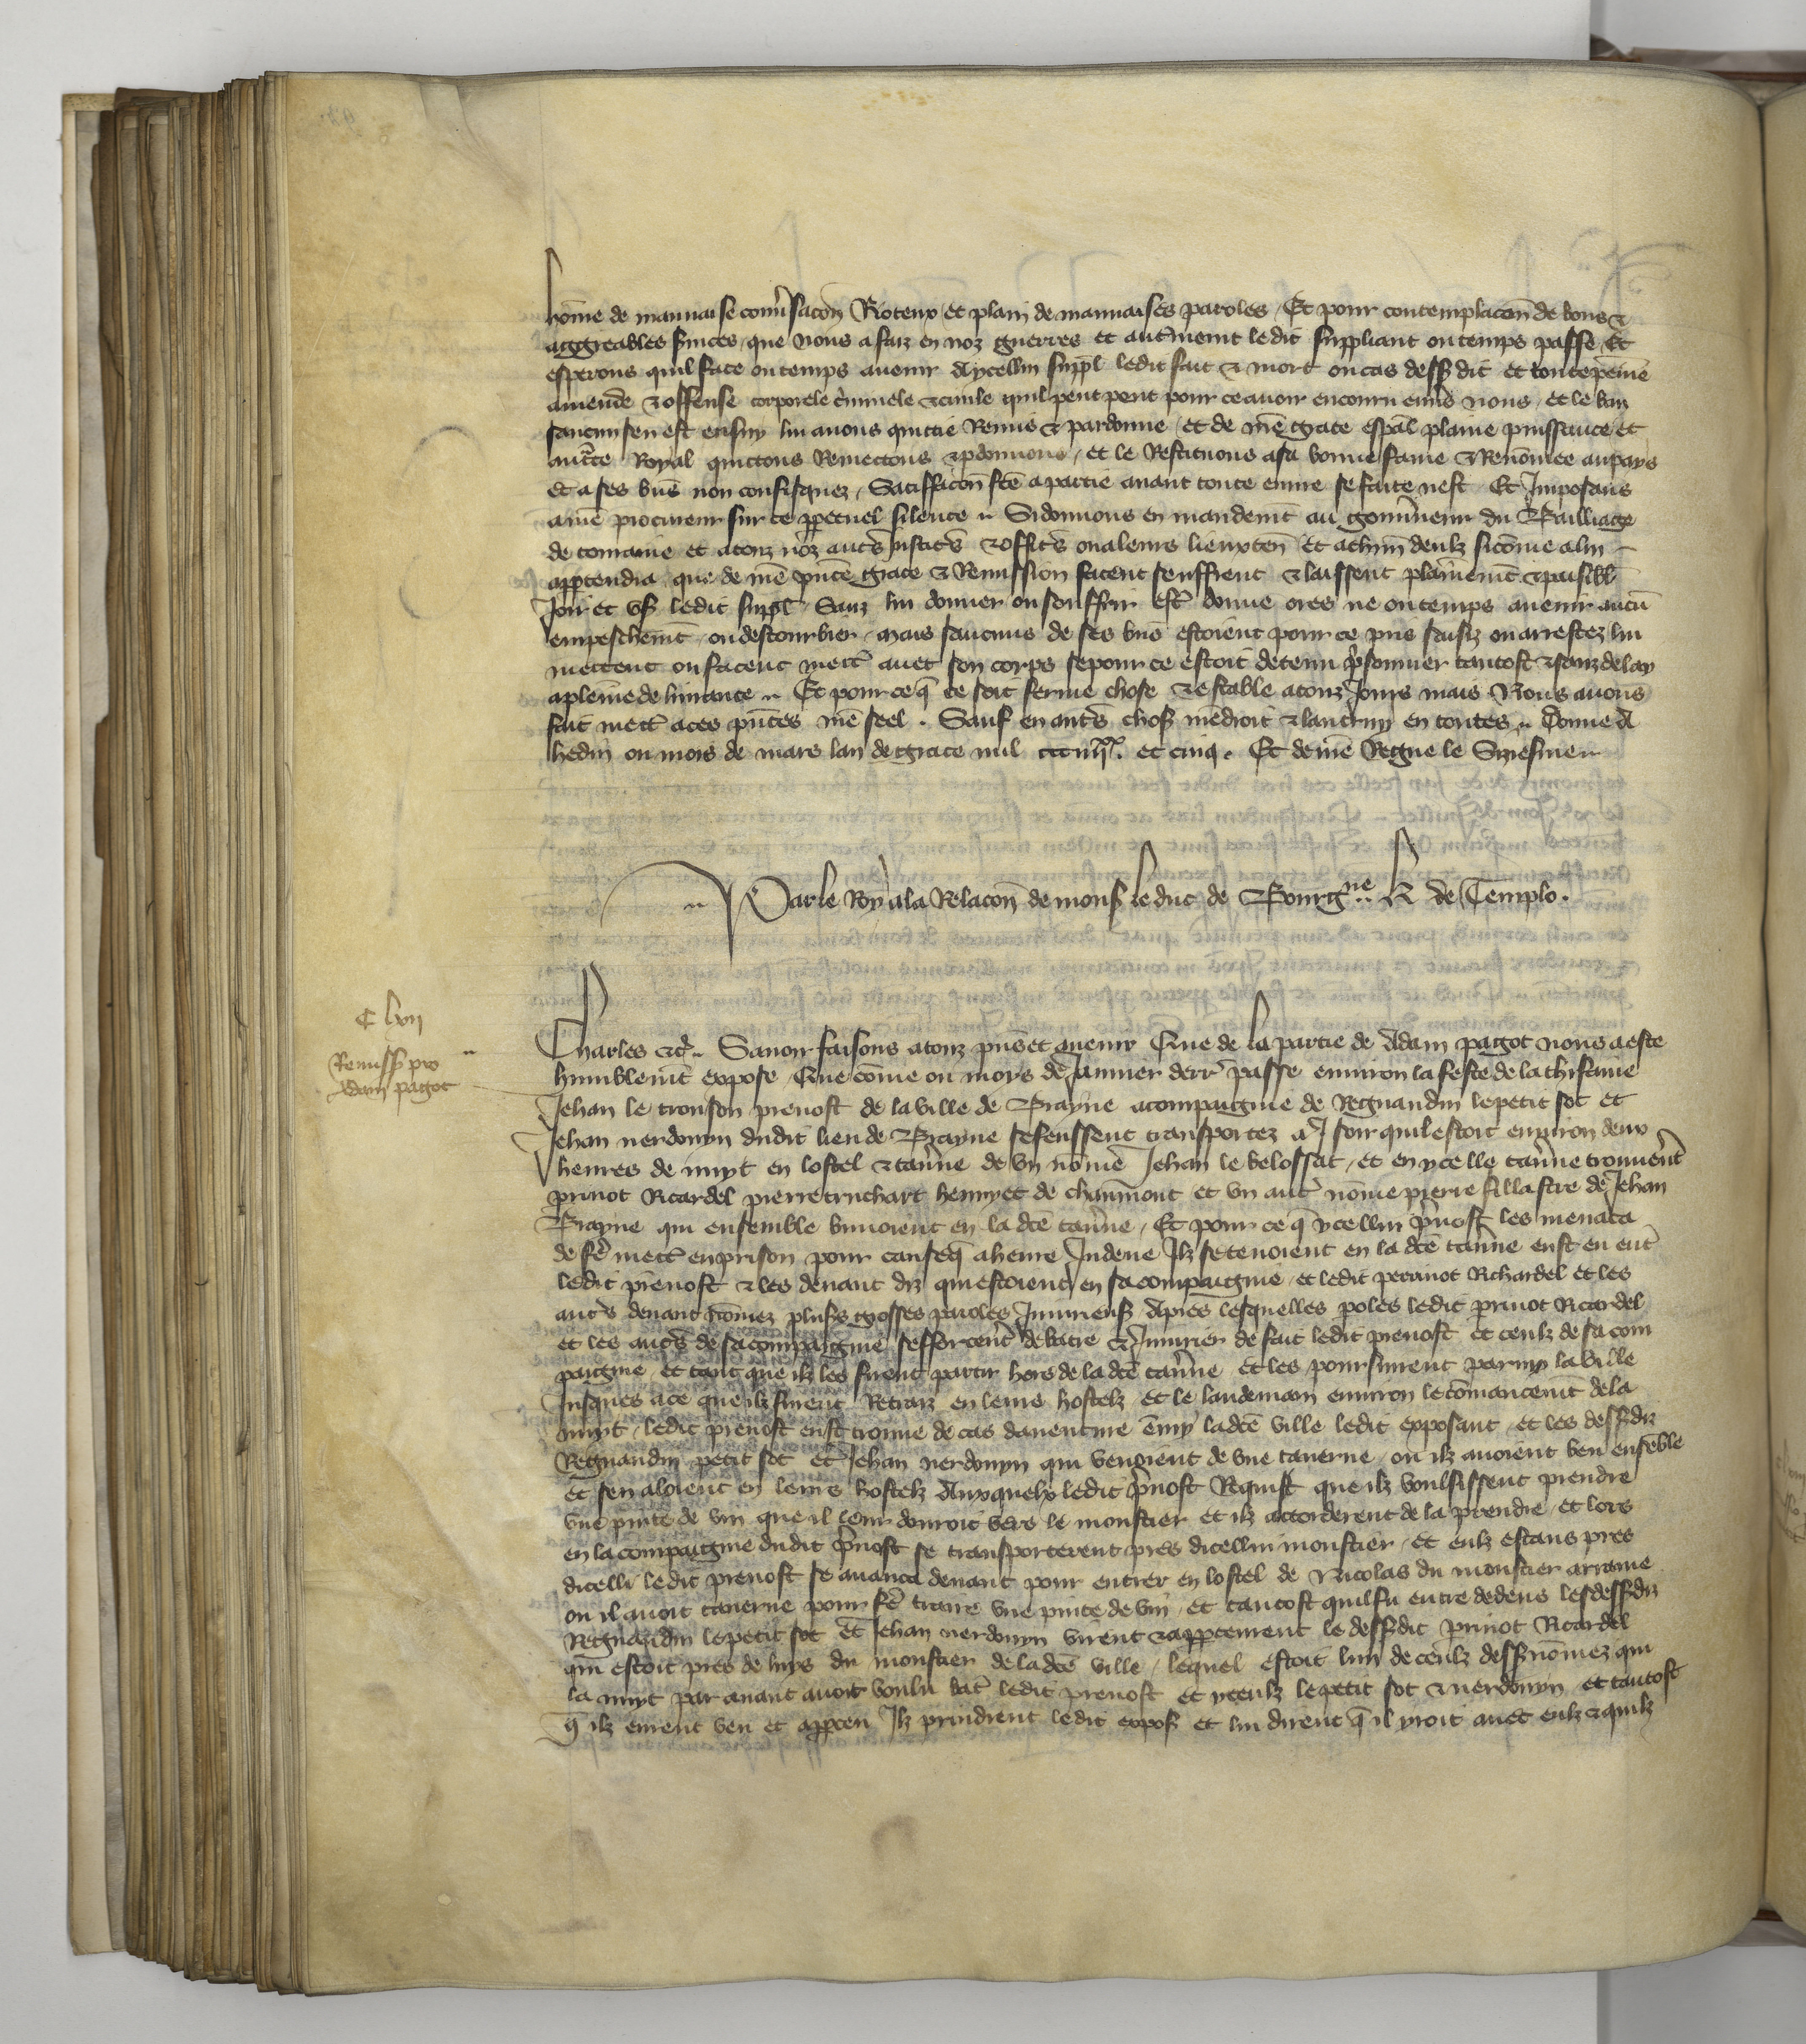 hõme de mauvaise conv̾sacõn Roteux et plain de mauvaises paroles / Et pour contemplacõn de bons &
aggreables s̾vices que nous a faiz en noz guerres et aut̾ment ledit suppliant ou temps passe / Et
esperons quil face ou temps avenir Aycellui suppl̃ ledit fait & mort ou cas dess̾ dit et toute peine
amende & offense corporele c̾minele & civile quil peut pour ce avoir encouru env̾s nous / et le ban
saucun sen est ensuy lui avons quictie Remis & pardonne / et de nr̃e grace esp̃al plaine puissance et
auct̃te Royal quictons Remectons & p̱donnons / et le Restituons a sa bonne fame & Renõmee au pays
et a ses biẽs non confisquez / Satiffacõn fc̃e a partie avant toute euvre se faicte nest Et Imposans
a nr̃e procureur sur ce p̱petuel silence .. Si donnons en mandemẽt au gouv̾neur du Bailliage
de tornaire et a touz noz aut̾s Justic̾s & offic̾s ou a leurs lieuxteñ Et a chũn deulx si cõme a lui
app̱tendra que de nr̃e p̃nte grace & Remission facent seuffrent & laissent plainemẽt & paisibl̃
Joir et us̾ ledit suppl̃ / Sanz lui donner ou souffrir est̾ donne ores ne ou temps avenir aucũ
empeschemẽt ou destourbier / mais saucuns de ses biẽs estoient pour ce pris saisiz ou arrestez lui
mettent ou facent mett̾ avec son corps se pour ce estoit detenu p̾sonnier tantost & sanz delay
a pleine delivrance .. Et pour ce q̃ ce soit ferme chose & estable a touz Jours mais Nous avons
fait mett̾ a ces p̃ntes nr̃e seel . Sauf en aut̾s chos̾ nr̃e droit & lautruy en toutes .. Donne A
hedin ou mois de mars lan de grace mil ccciiijxx. et cinq . Et de nr̃e Regne le Sixiesme ..
.. Par le Roy a la Relacõn de mons̾ le duc de Bourgne .. H de Templo .
C lvij
Remiss̾ pro
Adam pagot
Charles &c̾ .. Savoir faisons a touz p̃ns et avenir Que de la partie de Adam pagot nous a este
humblemẽt expose Que cõme ou mois de Janvier derr̾ passe environ la feste de la thifaine
Jehan le tronson prevost de la ville de Brayne acompaignie de Regnaudin le petit sot et
Jehan verdouyn dudit lieu de Brayne se feussent transportez a J soir quil estoit environ deux
heures de nuyt en lostel & tav̾ne de un nõme Jehan le velossat / et en ycelle tav̾ne trouver̃t
p̱rinot Ricardel pierre truchart henryet de chaumont et un aut̾ nõme pierre fillastre de Jehan
Brayne qui ensemble buvoient en la dc̃e tav̾ne / Et pour ce q̃ ycellui p̾vost les menaca
de f̾e mett̾ en prison pour cause q̃ a heure Indeue Ilz se tenoient en la dc̃e tav̾ne eust eu ent̾
ledit prevost & les devant diz qui estoient en sa compaignie / et ledit perrinot Richardel et les
aut̾s devant nõmez plus̾s grosses paroles Injurieus̾ Apres lesquelles p̱oles ledit p̱rinot Ricardel
et les aut̾s de sa compaignie sefforcer̃t de batre & Injurier de fait ledit prevost et ceulx de sa com
paignie / et tant que ilz les firent partir hors de la dc̃e tav̾ne et les poursuirent parmy la ville
Jusques a ce que ilz furent Retraiz en leurs hostelz et le landemain environ le cõmancemẽt de la
nuyt / ledit prevost eust trouve de cas daventure ẽmy la dc̃e ville ledit exposant / et les dess̾diz
Regnaudin petit sot et Jehan verdouyn qui venoient de une taverne / ou ilz avoient beu ensẽble
et sen aloient en leurs hostelz Auxquelx ledit p̾vost Requist que ilz voulsissent prendre
une pinte de vin que il leur donroit vers le monstier et ilz accorderent de la prendre / et lors
en la compaignie dudit p̾vost se transporterent pres dicellui monstier / et eulx estans pres
dicellũi ledit prevost se avanca devant pour entrer en lostel de Nicolas du monstier arrame
ou il avoit taverne pour f̾e traire une pinte de vin / et tantost quil fu entre dedens les dess̾diz
Regnaudin le petit sot et Jehan verdouyn virent & app̱ceurent le dess̾dit p̱rinot Ricardel
qui estoit pres de luys du monstier de la dc̃e ville / lequel estoit lun de ceulx dess̾nõmez qui
la nuyt par avant avoit voulu bat̾ ledit prevost et yceulx le petit sot & verdouyn / et tantost
q̃ ilz eurent veu et app̱ceu Ilz prindrent ledit expos̾ et lui dirent q̃ il yroit avec eulx & quilz